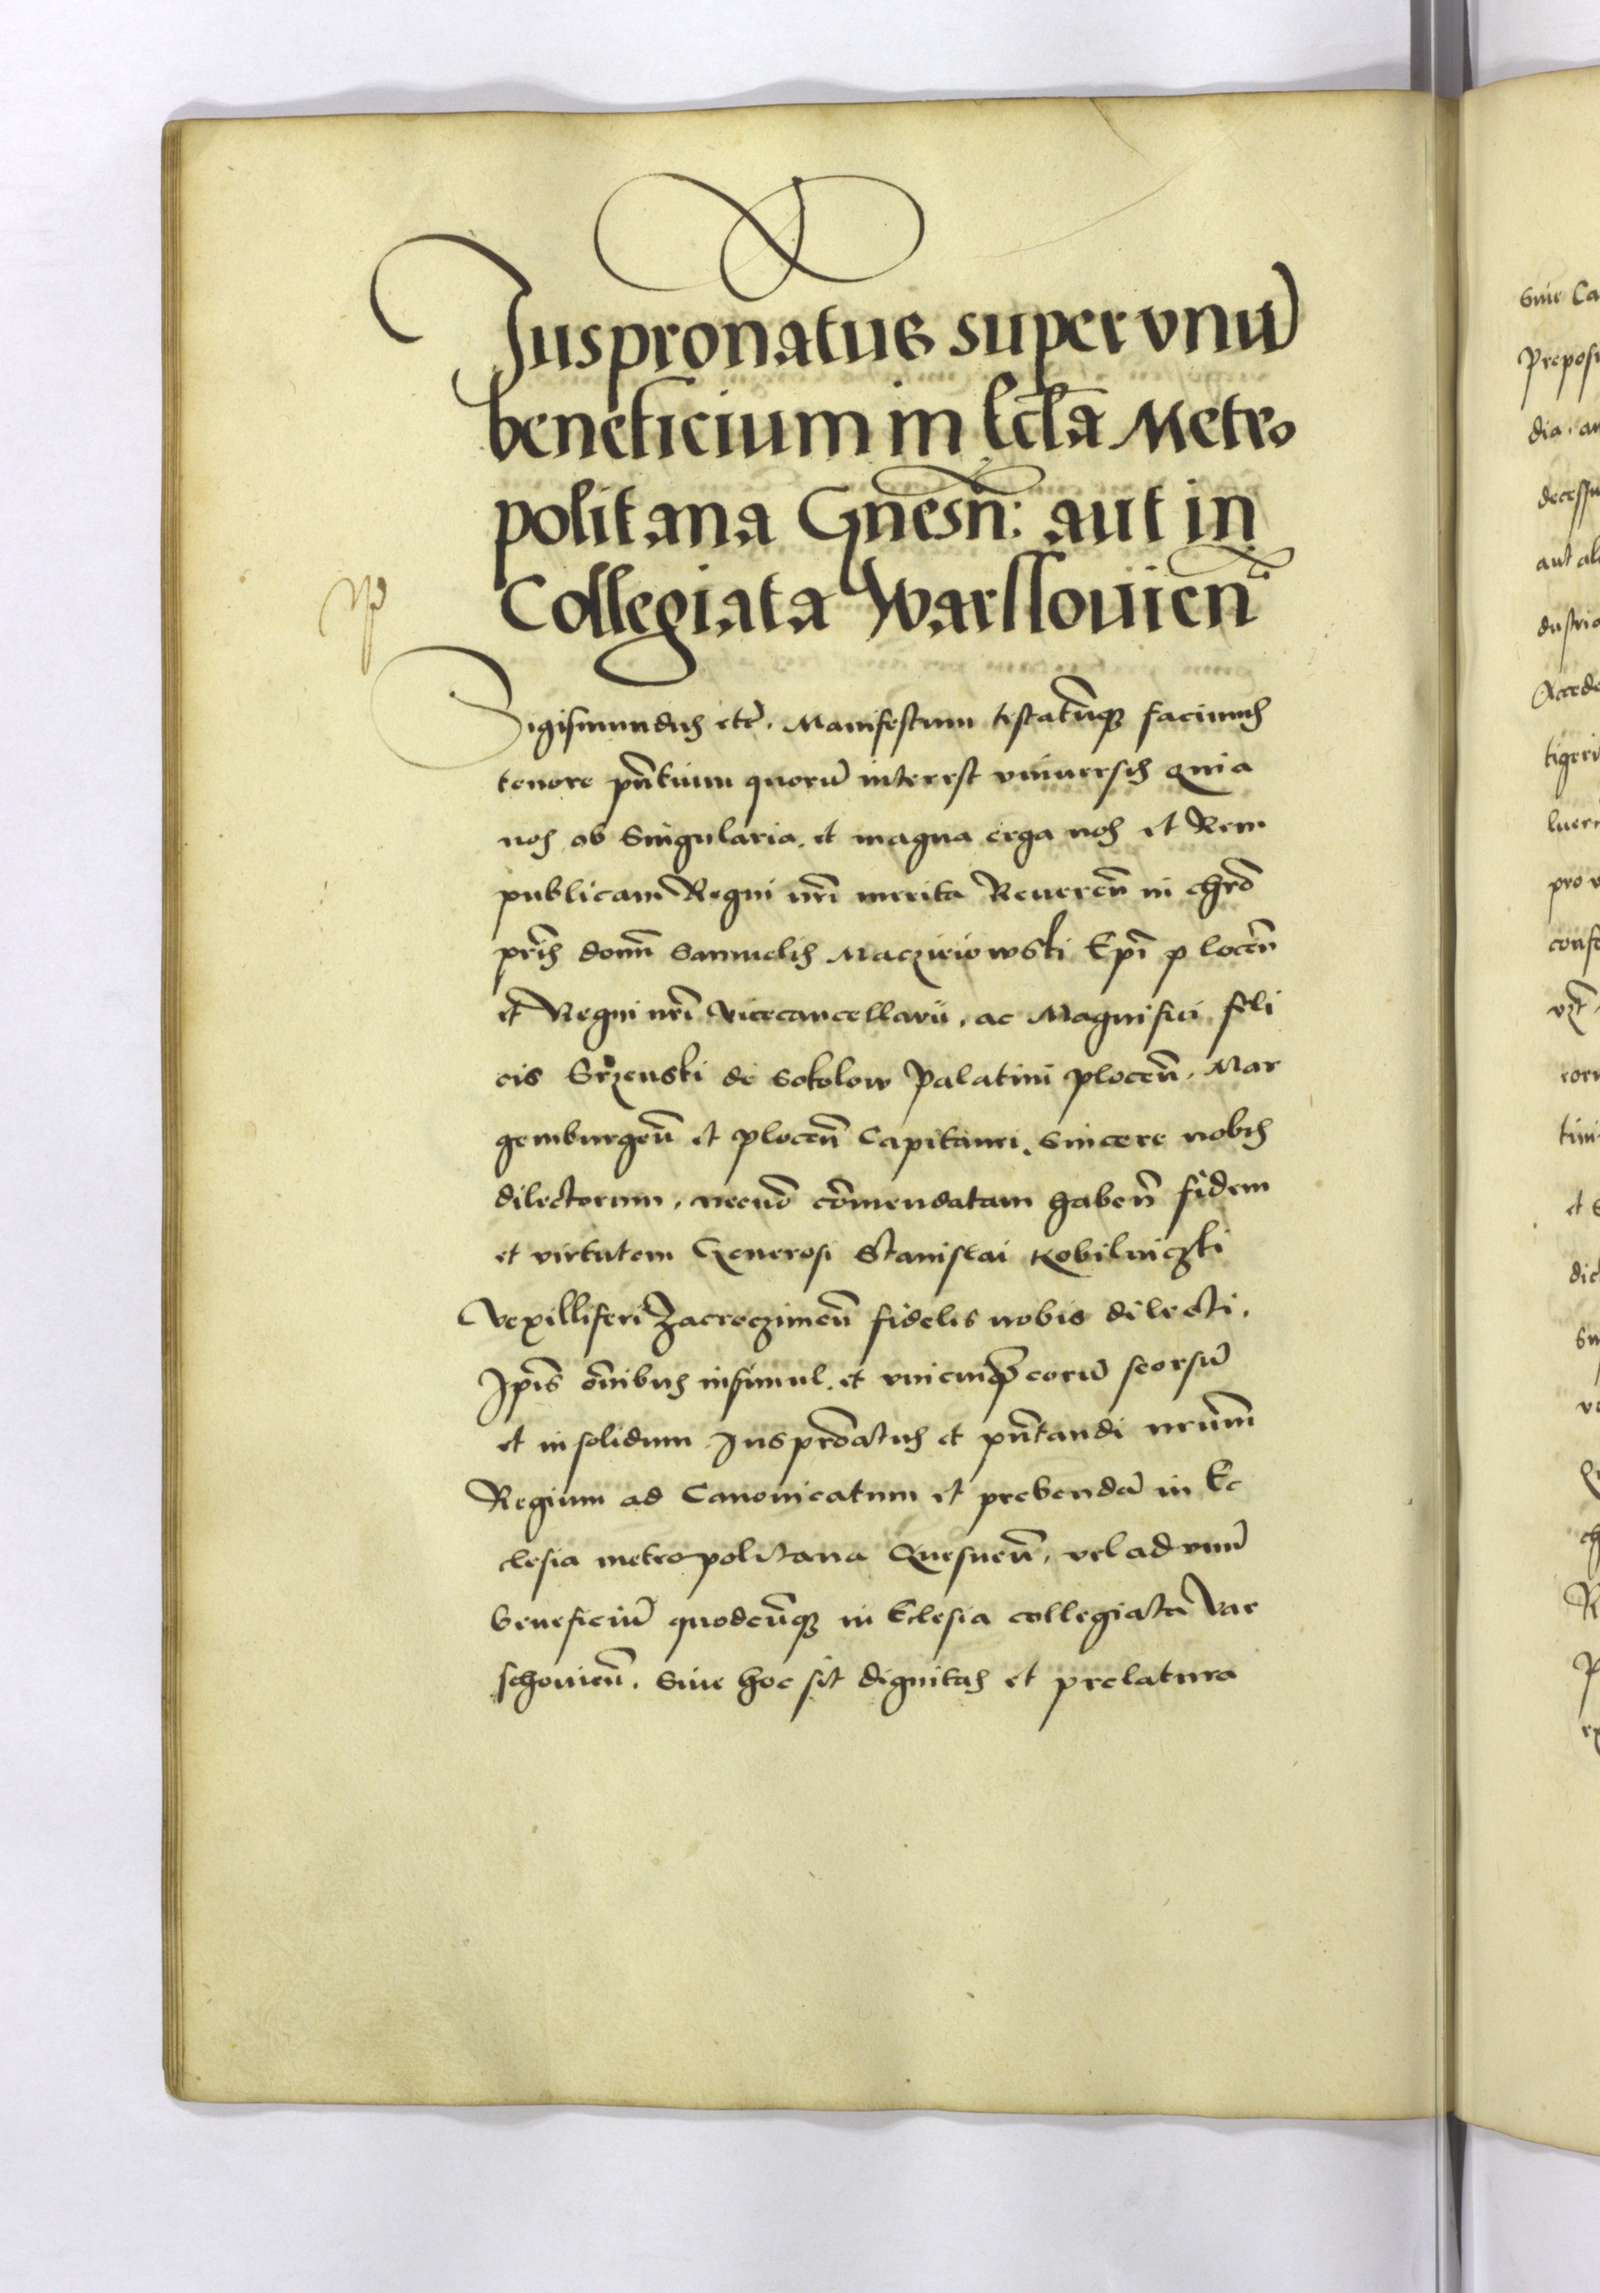 Juspronatus super vnū
beneficium in Eccl̄a Metro
politana Gnesn̄: aut in
Collegiata Warssouien̄
Sigismundus etc̄. Manifestum testatūq3 facimus
tenore pn̄tium quorū interest vniuersis Quia
nos ob Singularia et magna erga nos et Rem
publicam Regni nr̄i merita Reueren̄ in chr̄o
pr̄is domn̄ Samuelis Maczieiowski Ep̄i plocen̄
et Regni nr̄i Vicecancellarii, ac Magnifici feli
cis Srzenski de Sokolow Palatini plocen̄. Mar
gemburgen̄ et plocen̄ Capitanei. Sincere nobis
dilectorum, necnō cōmendatam haben̄ fidem
et virtutem Generosi Stanislai Kobilniczki
Vexilliferi Zacroczimen̄ fidelis nobis dilecti.
Ip̄is om̄ibus insimul et vnicuiq3 eorū seorsū
et insolidum Jusprōatus et pn̄tandi nr̄um
Regium ad Canonicatum et prebendā in Ec
clesia metropolitana Gnesnen̄, vel ad vnū
beneficiū quodcūq3 in Eclesia collegiata Var
schouien̄. Siue hoc sit dignitas et prelatura
Siue Ca
Preposi
dia. au
decessu
aut al
dustria
Accede
tigeri
luer
pro v
conf